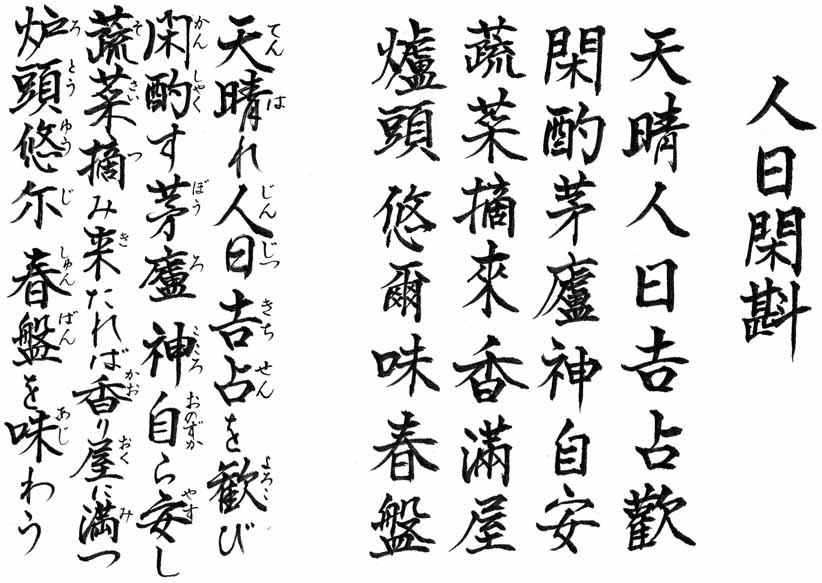 人日閑斟
天晴人日吉占歡
閑酌茅廬神自安
蔬菜摘來香滿屋
爐頭悠爾味春盤
てん は じんじつ きちせん よろこ
天晴れ人日吉占を歓び
かんしゃく ぼうろ こころ おのずか やす
閑酌す茅廬 神自ら安し
そさい つ き かお おく み
蔬菜摘み来たれば香り屋に満つ
ろとうゆうじ しゅんばん あじ
炉頭悠尓 春盤を味わう